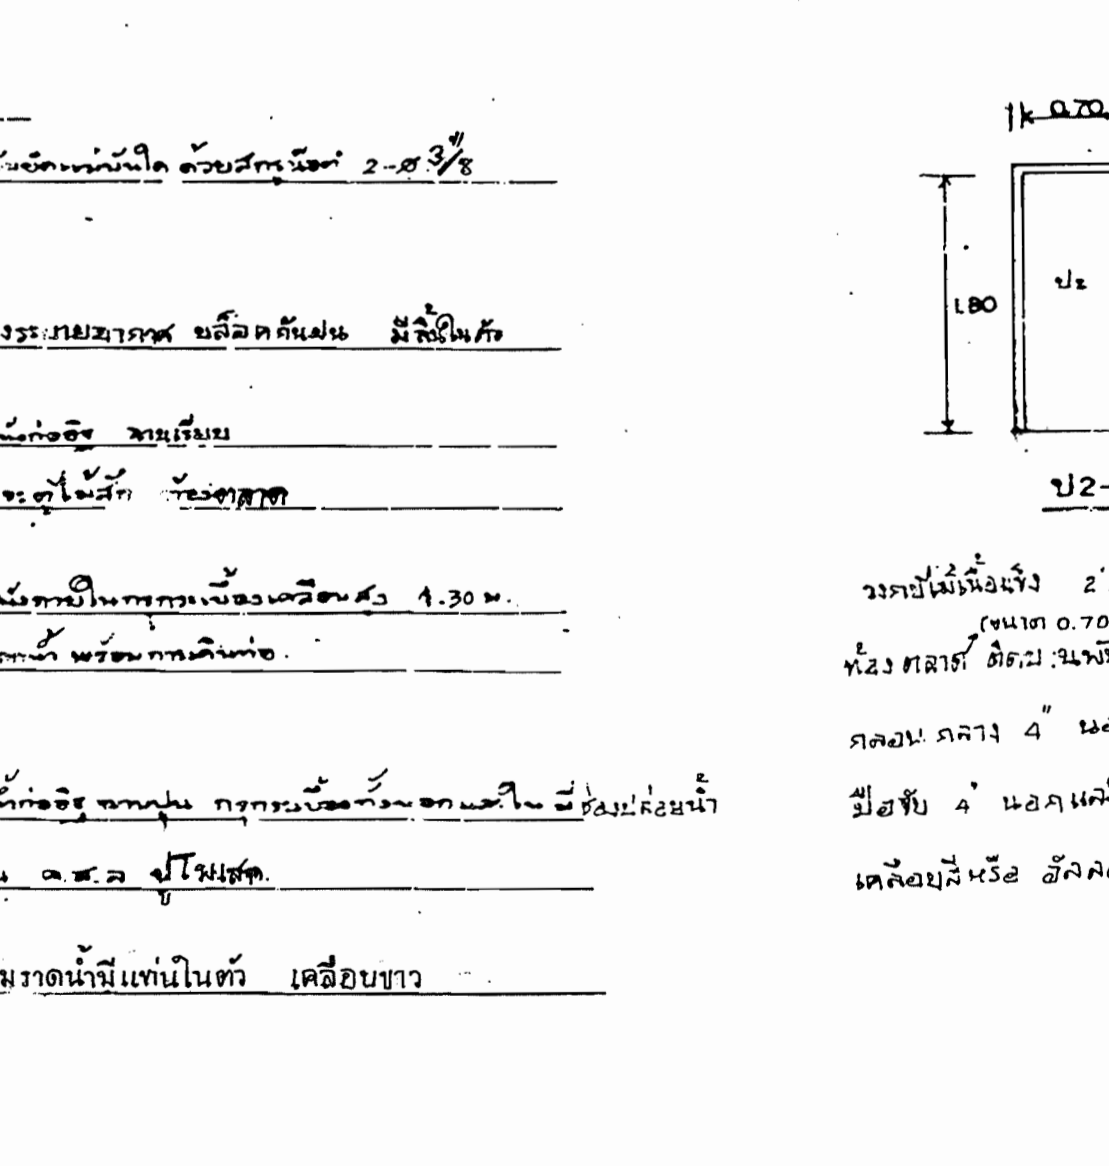 ด้วยสกรูน๊อต 2-ø 3/8"
ระบายอากาศ บล็อคกันฝน มีลิ้นในตัว
ก่ออิฐ ฉาบเรียบ
ประตูไม้สัก ท้องตลาด
ภายในกรุกระเบื้องเคลือบสูง 1.30 ม.
พร้อมการเดินท่อ.
ก่ออิฐ ฉาบปูน กรุกระเบื้องทั้งนอกและใน มีช่องปล่อยน้ำ
ค.ส.ล ปูโมเสค.
ราดน้ำมีแท่นในตัว เคลือบขาว
0.70
1.80
ป2
ป2-
วงกบไม้เนื้อแข็ง 2"
(ขนาด 0.70
ท้องตลาด
กลอน กลาง 4"
มือจับ 4" นอกและ
เคลือบสีหรือ